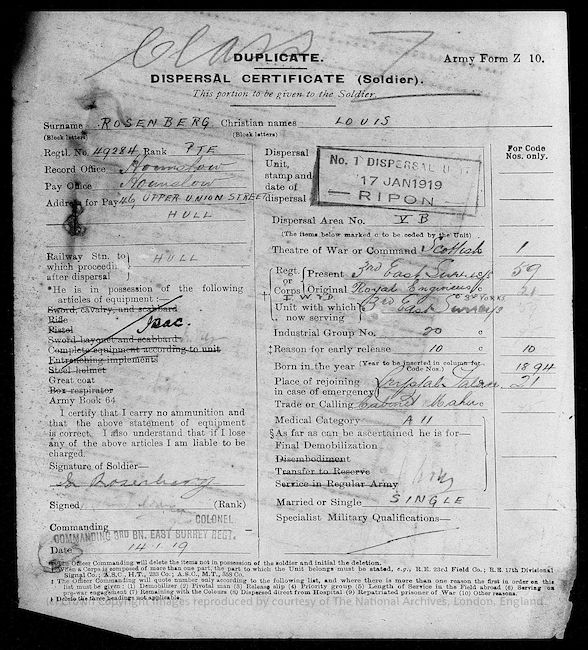 Class Z
DUPLICATE.
Army Form Z 10.
DISPERSAL CERTIFICATE (Soldier).
This portion to be given to the Soldier.
Surname ROSENBERG Christian names LOUIS
(Block letters) (Block letters)
Regtl. No. 49284 Rank PTE
Record Office Hounslow
Pay Office Hounslow
Address for Pay 46, UPPER UNION STREET
HULL
Railway Stn. to
which proceeding
after dispersal
HULL
*He is in possession of the following
articles of equipment:—
Sword, cavalry, and scabbard
Rifle
Pistol
Sword bayonet and scabbard
Complete equipment according to unit
Entrenching implements
Steel helmet
Great coat
Box respirator
Army Book 64
I certify that I carry no ammunition and
that the above statement of equipment
is correct. I also understand that if I lose
any of the above articles I am liable to be
charged.
Signature of Soldier—
L Rosenberg
Signed (Rank)
COLONEL,
Commanding
COMMANDING 3RD BN. EAST SURREY REGT.
Date 14 1 19
For Code
Nos. only.
Dispersal
Unit,
stamp and
date of
dispersal
No. 1 DISPERSAL UNIT
17 JAN 1919
RIPON
Dispersal Area No. V B
(The items below marked c to be coded by the Unit)
Theatre of War or Command Scottish c 1
Regt. or Corps
Present 3rd East Surreys c 59
Original Royal Engineers c 21
Unit with which
now serving
3rd East Surreys
Industrial Group No. 20 c
‡Reason for early release 10 c 10
Born in the year (Year to be inserted in column for
Code Nos.) 1894
Place of rejoining
in case of emergency
Crystal Palace 21
Trade or Calling Cabinet Maker c
Medical Category A 11
§As far as can be ascertained he is for—
Final Demobilization
Disembodiment
Transfer to Reserve
Service in Regular Army
Married or Single SINGLE
Specialist Military Qualifications—
*The Officer Commanding will delete the items not in possession of the soldier and initial the deletion.
†When a Corps is composed of more than one part, the part to which the Unit belongs must be stated, e.g., R.E. 23rd Field Co.; R.E. 17th Divisional
Signal Co.; A.S.C., H.T., 230 Co.; A.S.C., M.T., 558 Co.
‡The Officer Commanding will quote number only according to the following list, and where there is more than one reason the first in order on this
list must be given: (1) Demobilizer (2) Pivotal man (3) Release slip (4) Priority group (5) Length of Service in the Field abroad (6) Serving on
pre-war engagement (7) Remaining with the Colours (8) Dispersed direct from Hospital (9) Repatriated prisoner of War (10) Other reasons.
§Delete the three headings not applicable.
Copyright images reproduced by courtesy of The National Archives, London, England.